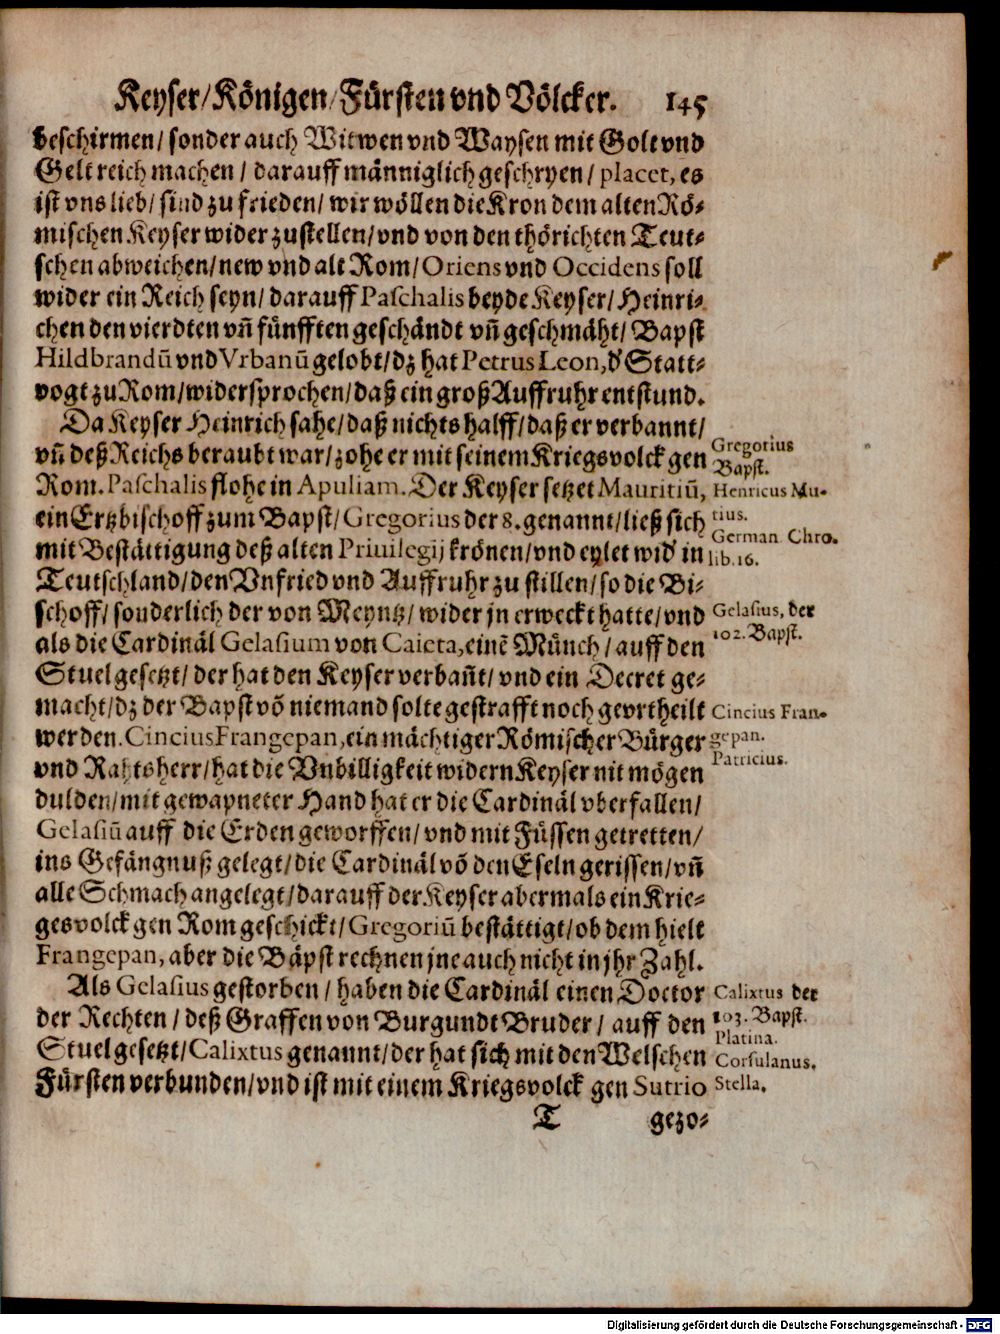 Keyser/Königen/Fürsten vnd Völcker. 145
beschirmen/ sonder auch Witwen vnd Waysen mit Golt vnd
Gelt reich machen / darauff männiglich geschryen / placet, es
ist vns lieb/ sind zu frieden/ wir wöllen die Kron dem alten Rö-
mischen Keyser wider zustellen/ vnd von den thörichten Teut-
schen abweichen/ new vnd alt Rom/ Oriens vnd Occidens soll
wider ein Reich seyn/ darauff Paschalis beyde Keyser/ Heinri-
chen den vierdten vñ fünfften geschändt vñ geschmäht/ Bapst
Hildbrandū vnd Vrbanū gelobt/ dz hat Petrus Leon, d' Statt-
vogt zu Rom/ widersprochen/ daß ein groß Auffruhr entstund.
Da Keyser Heinrich sahe/ daß nichts halff/ daß er verbannt/
vñ deß Reichs beraubt war/ zohe er mit seinem Kriegsvolck gen
Rom. Paschalis flohe in Apuliam. Der Keyser setzet Mauritiū,
ein Ertzbischoff zum Bapst/ Gregorius der 8. genannt/ ließ sich
mit Bestättigung deß alten Priuilegij krönen/ vnd eylet wid' in
Teutschland/ den Vnfried vnd Auffruhr zu stillen/ so die Bi-
schoff/ sonderlich der von Meyntz/ wider jn erweckt hatte/ vnd
als die Cardinäl Gelasium von Caieta, einē Münch/ auff den
Stuel gesetzt/ der hat den Keyser verbañt/ vnd ein Decret ge-
macht/ dz der Bapst võ niemand solte gestrafft noch gevrtheilt
werden. Cincius Frangepan, ein mächtiger Römischer Bürger
vnd Rahtsherr/ hat die Vnbilligkeit widern Keyser nit mögen
dulden/ mit gewapneter Hand hat er die Cardinäl vberfallen/
Gelasiū auff die Erden geworffen/ vnd mit Füssen getretten/
ins Gefängnuß gelegt/ die Cardinäl võ den Eseln gerissen/ vñ
alle Schmach angelegt/ darauff der Keyser abermals ein Krie-
gesvolck gen Rom geschickt/ Gregoriū bestättigt/ ob dem hielt
Frangepan, aber die Bäpst rechnen jne auch nicht in jhr Zahl.
Als Gelasius gestorben / haben die Cardinäl einen Doctor
der Rechten / deß Graffen von Burgundt Bruder / auff den
Stuel gesetzt/ Calixtus genannt/ der hat sich mit den Welschen
Fürsten verbunden/ vnd ist mit einem Kriegsvolck gen Sutrio
T gezo-
Gregorius
Bapst.
Henricus Mu-
tius.
German Chro.
lib. 16.
Gelasius, der
102. Bapst.
Cincius Fran-
gepan.
Patricius.
Calixtus der
103. Bapst.
Platina.
Corsulanus.
Stella.
Digitalisierung gefördert durch die Deutsche Forschungsgemeinschaft - DFG